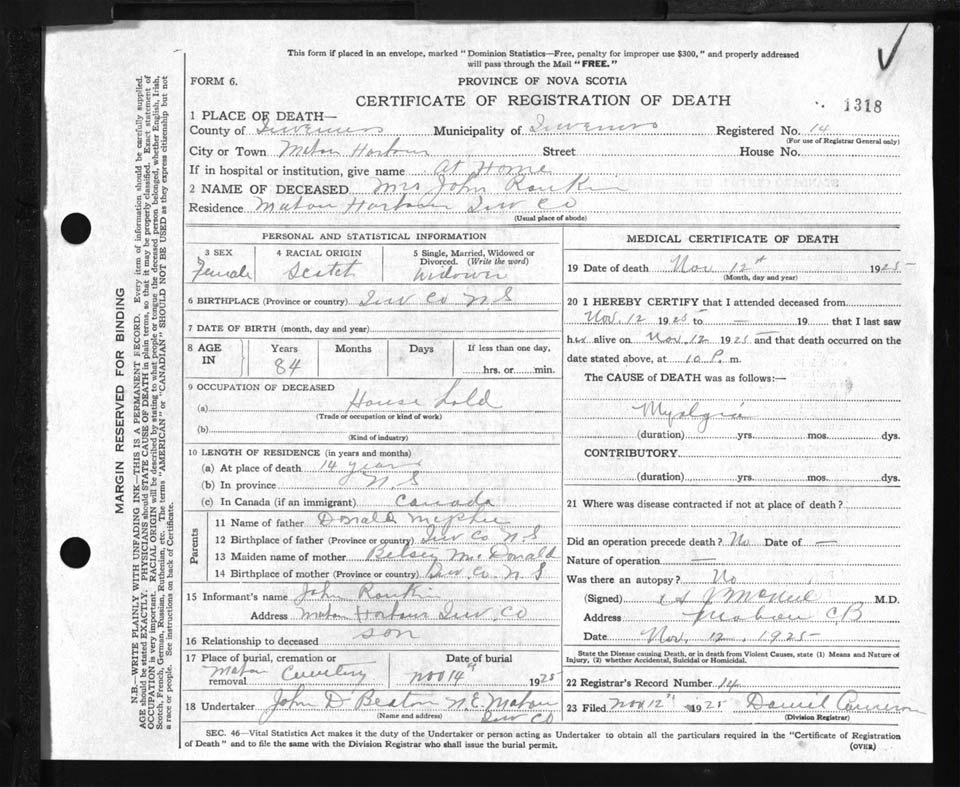 This form if placed in an envelope, marked "Dominion Statistics—Free, penalty for improper use $300," and properly addressed
will pass through the Mail "FREE."
FORM 6.
PROVINCE OF NOVA SCOTIA
CERTIFICATE OF REGISTRATION OF DEATH
1318
1 PLACE OF DEATH—
County of Inverness Municipality of Inverness Registered No. 14
(For use of Registrar General only)
City or Town Mabou Harbour Street House No.
If in hospital or institution, give name At Home
2 NAME OF DECEASED Mrs John Rankin
Residence Mabou Harbour Inv Co
(Usual place of abode)
PERSONAL AND STATISTICAL INFORMATION
3 SEX
Female
4 RACIAL ORIGIN
Scotch
5 Single, Married, Widowed or
Divorced. (Write the word)
Widown
6 BIRTHPLACE (Province or country) Inv Co N S
7 DATE OF BIRTH (month, day and year)
8 AGE IN
Years Months Days If less than one day,
84 hrs. or min.
9 OCCUPATION OF DECEASED
(a) House hold
(Trade or occupation or kind of work)
(b)
(Kind of industry)
10 LENGTH OF RESIDENCE (in years and months)
(a) At place of death 14 years
(b) In province N S
(c) In Canada (if an immigrant) Canada
Parents
11 Name of father Donald McPhee
12 Birthplace of father (Province or country) Inv Co N S
13 Maiden name of mother Betsey McDonald
14 Birthplace of mother (Province or country) Inv Co N S
15 Informant's name John Rankin
Address Mabou Harbour Inv. Co
16 Relationship to deceased son
17 Place of burial, cremation or
removal Mabou Cemetery
Date of burial
Nov 14th 1925
18 Undertaker John D Beaton N.E. Mabou
(Name and address) Inv Co
MEDICAL CERTIFICATE OF DEATH
19 Date of death Nov 12th 1925
(Month, day and year)
20 I HEREBY CERTIFY that I attended deceased from
Nov. 12 1925 to — 19 that I last saw
her alive on Nov. 12 1925 and that death occurred on the
date stated above, at 10 P. m.
The CAUSE of DEATH was as follows:—
Myalgia
(duration) yrs. mos. dys.
CONTRIBUTORY
(duration) yrs. mos. dys.
21 Where was disease contracted if not at place of death?
Did an operation precede death? No Date of —
Nature of operation —
Was there an autopsy? No
(Signed) M.D.
Address Mabou CB
Date Nov. 12, 1925
State the Disease causing Death, or in death from Violent Causes, state (1) Means and Nature of
Injury, (2) whether Accidental, Suicidal or Homicidal.
22 Registrar's Record Number 14
23 Filed Nov 12th 1925 Daniel Cameron
(Division Registrar)
SEC. 46—Vital Statistics Act makes it the duty of the Undertaker or person acting as Undertaker to obtain all the particulars required in the "Certificate of Registration
of Death" and to file the same with the Division Registrar who shall issue the burial permit.
(OVER)
MARGIN RESERVED FOR BINDING
N.B.—WRITE PLAINLY WITH UNFADING INK—THIS IS A PERMANENT RECORD. Every item of information should be carefully supplied.
AGE should be stated EXACTLY. PHYSICIANS should STATE CAUSE OF DEATH in plain terms, so that it may be properly classified. Exact statement of
OCCUPATION is very important. RACIAL ORIGIN will be described by stating to what people or tongue the deceased person belonged, whether English, Irish,
Scotch, French, German, Russian, Ruthenian, etc. The terms "AMERICAN" or "CANADIAN" SHOULD NOT BE USED as they express citizenship but not
a race or people. See instructions on back of Certificate.